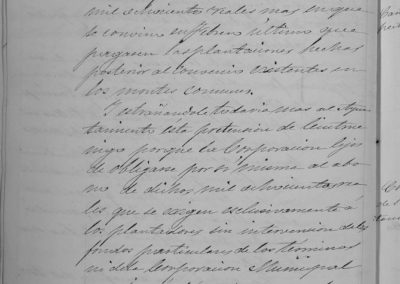 mil ochocientos reales mas en que
se convino en Febrero último que
pagasen las plantaciones hechas
posterior al Convenio existentes en
los montes comunes.
Y estrañandole todavia mas al Ayun
tamiento ésta pretension de
porque la Corporacion lejos
de obligarse por si misma al abo
no de dichos mil ochocientos rea
les que se exigen esclusivamente á
los plantadores sin intervencion de los
fondos particulares de los terminos
ni de la Corporacion Municipal